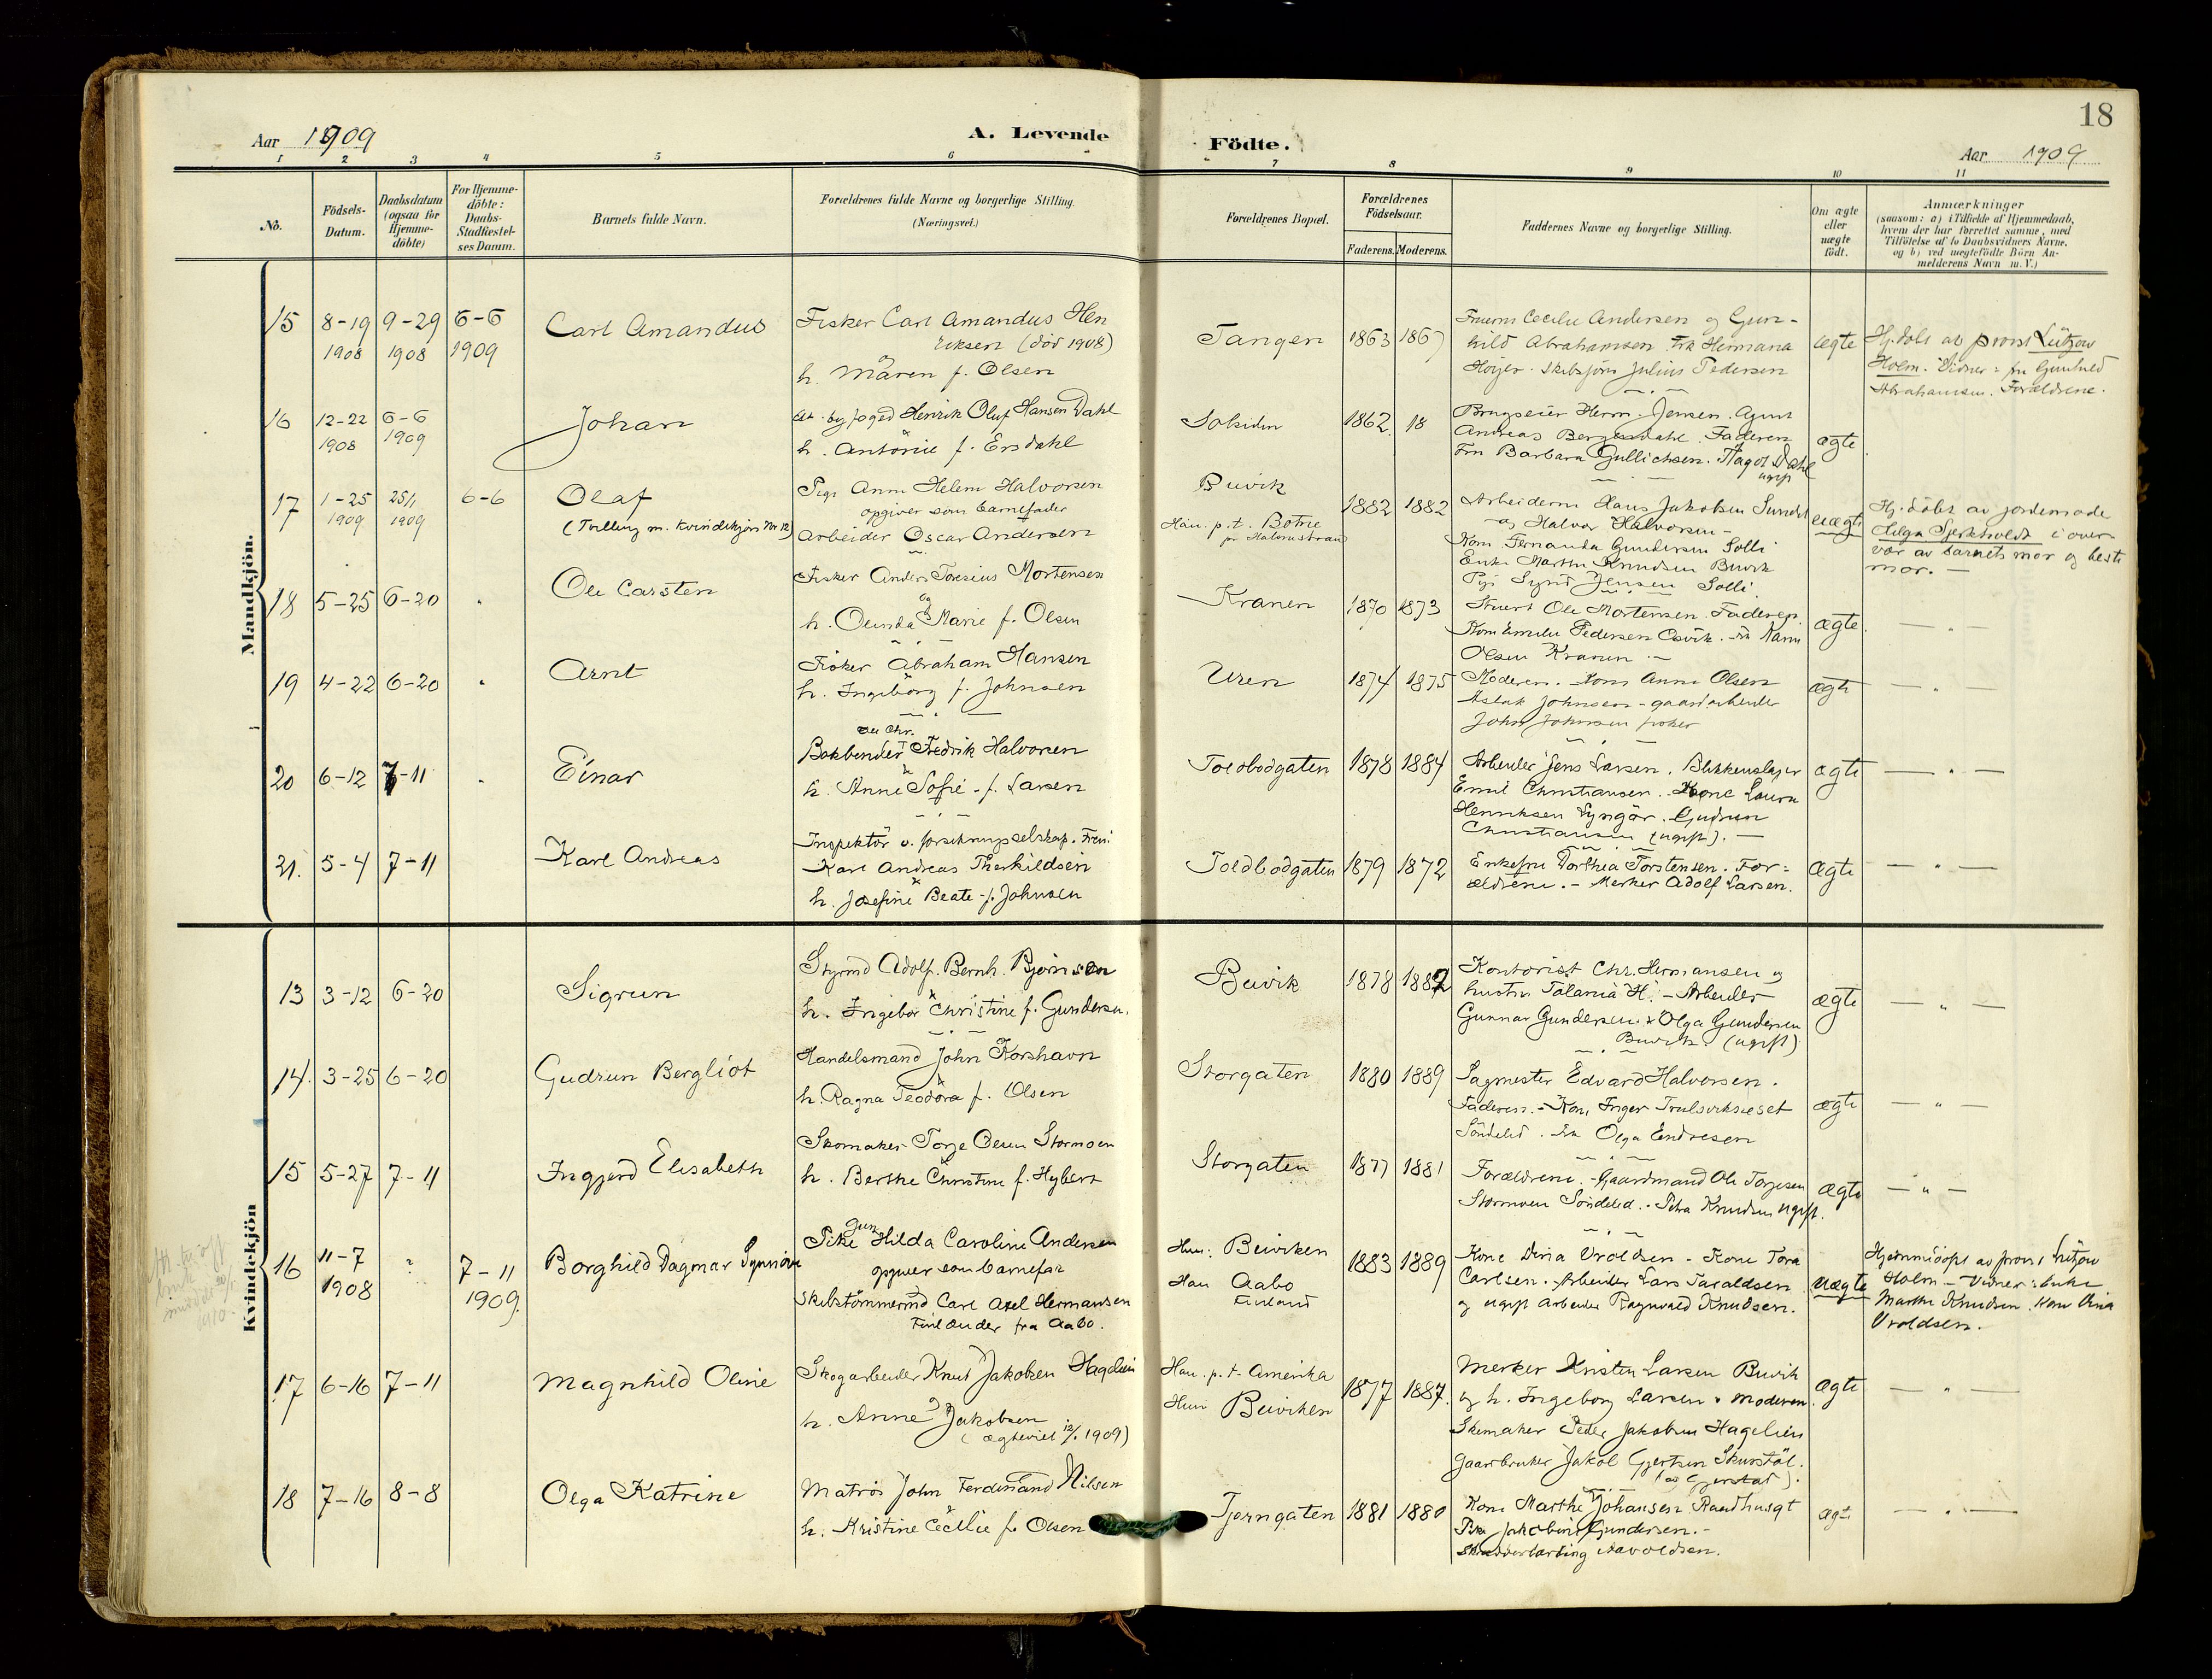 18
Aar 1909
A. Levende
Födte.
Aar 1909
1 2 3 4 5 6 7 8 9 10 11
No.
Födsels-
Datum.
Daabsdatum
(ogsaa for
Hjemme-
döbte)
For Hjemme-
döbte:
Daabs-
Stadfæstel-
ses Datum.
Barnets fulde Navn.
Forældrenes fulde Navne og borgerlige Stilling.
(Næringsvei.)
Forældrenes Bopæl.
Forældrenes
Födselsaar.
Faderens. Moderens.
Faddernes Navne og borgerlige Stilling.
Om ægte
eller
uægte
födt.
Anmærkninger
(saasom: a) i Tilfælde af Hjemmedaab,
hvem der har forrettet samme, med
Tilföielse af to Daabsvidners Navne,
og b) ved uægtefödte Börn An-
melderens Navn m. V.)
Mandkjön.
15 8-19 1908 9-29 1908 6-6 1909
Carl Amandus
Fisker Carl Amandus Hen
riksen (död 1908)
h. Maren f. Olsen
Tangen 1863 1867
Fruerne Cecilie Andersen og Gun-
hild Abrahamsen. Frk Hermana
Höyer. Skibsförer Julius Pedersen
ægte
Hj. döbt av provst Lützow
Holm. Vidner: fru Gunhild
Abrahamsen. Forældrene.
16 12-22 1908 6-6 1909
Johan
byfoged Henrik Oluf Hansen Dahl
h. Antonie f. Ersdahl
1862 18
Brugseier Herm. Jensen. Agent
Andreas Bergesdahl. Faderen
Fru Barbara Gullichsen. Dahl
ugift
ægte
17 1-25 1909 25/1 1909 6-6
Olaf
(Tvilling m. kvindekjön Nr 12)
Pige Anne Helene Halvorsen
opgiver som barnefader
Arbeider Oscar Andersen
Buvik
Han. p.t. Botne
pr Holmestrand
1882 1882
Arbeiderne Hans Jakobsen Sundet
og Halvor Halvorsen -
Kone Fernanda Gundersen Solli
Enke Marthe Knudsen Buvik
Pige Jensen Solli.
uægte
Hj. döbt av jordemoder
Helga i over-
vær av barnets mor og beste
mor. -
18 5-25 6-20
Ole Carsten
Fisker Anders Tonesius Mortensen
h. Olinda Marie f. Olsen
Kranen 1870 1873
Stuert Ole Mortensen. Faderen.
Kone Emilie Pedersen. Frk
Olsen Kranen -
ægte
19 4-22 6-20
Arnt
Fisker Abraham Hansen
h. Ingeborg f. Johnsen
Uren 1874 1875
Moderen. Kone Anna Olsen
Aslak Johnsen - gaardarbeider
John Johnsen fisker
ægte
20 6-12 7-11
Einar
Ole Chr.
Bokbinder Fredrik Halvorsen
h. Anne Sofie - f. Larsen
Toldbodgaten 1878 1884
Arbeider Jens Larsen. Blikkenslager
Emil Christiansen. Kone Laura
Henriksen Lyngör. Gudrun
Christiansen (ugift). -
ægte
21. 5-4 7-11
Karl Andreas
Inspektör v. forsikringsselskap.
Karl Andreas Therkildsen
h. Josefine Beate - f. Johnsen
Toldbodgaten 1879 1872
Enkefru Dorthea Torstensen. For-
ældrene. - Merker Adolf Larsen.
ægte
Kvindekjön
13 3-12 6-20
Sigrun
Styrmd Adolf. Bernh. Björnsen
h. Ingebor Christine f. Gundersen.
Buvik 1878 1882
Kontorist Chr. Hermansen og
hustru H. - Arbeider
Gunnar Gundersen. Olga Gundersen
Buvik. (ugift)
ægte
14. 3-25 6-20
Gudrun Bergliot
Handelsmand John Korshavn
h. Ragna Teodora f. Olsen
Storgaten 1880 1889
Sagmester Edvard Halvorsen.
Faderen. - Kone Inger
Söndeled. Frk Olga Endresen
ægte
15 5-27 7-11
Ingjerd Elisabeth
Skomaker Torje Olsen Stormoen
h. Berthe Christine f. Hybert
Storgaten 1877 1881
Forældrene. - Gaardmand Ole Torjesen
Stormoen Söndeled. - Petra Knudsen ugift.
ægte
16 11-7 1908 7-11 1909.
Borghild Dagmar Synnöve
Pike Gun Hilda Caroline Andersen
opgiver som barnefar
Skibstömmermd. Carl Axel Hermansen
Finlænder fra Aabo.
Hun: Buviken
Han Aabo
Finland
1883 1889
Kone Dina Vroldsen - Kone Tora
Carlsen. Arbeider Lars Taraldsen
og ugift arbeider Ragnvald Knudsen.
uægte
Hjemmedöpt av provst Lützow
Holm - Vidner: Enke
Marthe Knudsen. Kone Dina
Vroldsen.
17 6-16 7-11
Magnhild Oline
Skogarbeider Knut Jakobsen Hagelien
h. Anne Jakobsen
(ægteviet 12/1 1909)
Han. p.t. Amerika
Hun Buviken
1877 1887.
Merker Kristen Larsen Buvik
og h. Ingeborg Larsen. Moderen.
Skomaker Peder Jakobsen Hagelien
Gaardbruker Jakob Gjertsen
Gjerstad).
ægte
18 7-16 8-8
Olga Katrine
Matros John Ferdinand Nilsen
h. Kristine Cecilie f. Olsen
Tjerngaten 1881 1880
Kone Marthe Johansen Raadhusgt
Pike Jakobine Gundersen. -
ægte